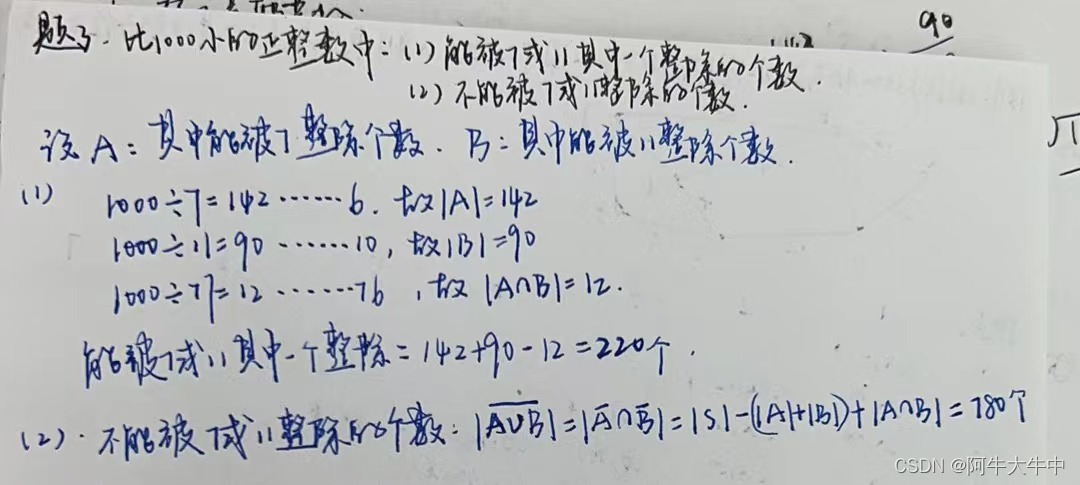 90
题3. 比1000小的正整数中: (1) 能被7或11其中一个整除的个数.
(2) 不能被7或11整除的个数.
设 A: 其中能被7整除个数. B: 其中能被11整除个数.
(1) 1000÷7=142……6. 故|A|=142
1000÷11=90……10, 故|B|=90
1000÷77=12……76, 故|A∩B|=12.
能被7或11其中一个整除=142+90-12=220个.
(2). 不能被7或11整除的个数: |A̅∪̅B̅|=|A̅∩B̅|=|S|-(|A|+|B|)+|A∩B|=780个
CSDN @阿牛大牛中